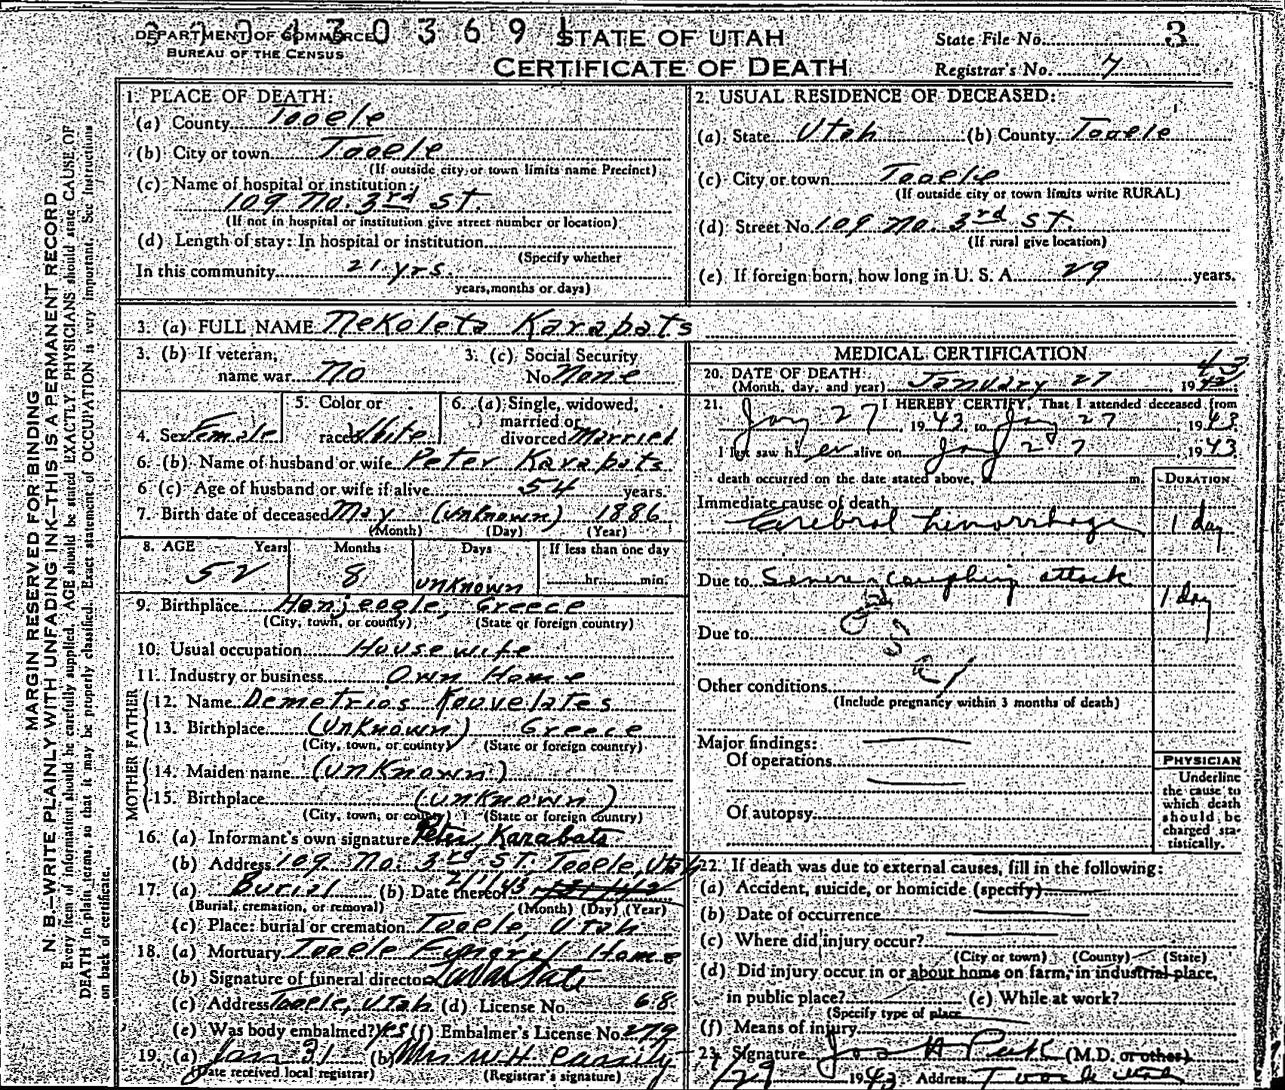 DEPARTMENT OF COMMERCE
BUREAU OF THE CENSUS
STATE OF UTAH
CERTIFICATE OF DEATH
State File No. 3
Registrar's No. 7
MARGIN RESERVED FOR BINDING
N. B.—WRITE PLAINLY WITH UNFADING INK—THIS IS A PERMANENT RECORD
Every item of information should be carefully supplied. AGE should be stated EXACTLY. PHYSICIANS should state CAUSE OF
DEATH in plain terms, so that it may be properly classified. Exact statement of OCCUPATION is very important. See Instructions
on back of certificate.
1. PLACE OF DEATH:
(a) County Tooele
(b) City or town Tooele
(If outside city or town limits name Precinct)
(c) Name of hospital or institution:
109 No. 3rd St.
(If not in hospital or institution give street number or location)
(d) Length of stay: In hospital or institution
(Specify whether
In this community 21 yrs.
years, months or days)
2. USUAL RESIDENCE OF DECEASED:
(a) State Utah (b) County Tooele
(c) City or town Tooele
(If outside city or town limits write RURAL)
(d) Street No. 109 No. 3rd St.
(If rural give location)
(e) If foreign born, how long in U. S. A. 29 years.
3. (a) FULL NAME Nekoleta Karabats
3. (b) If veteran, name war No
3. (c) Social Security No. None
4. Sex Female
5. Color or race White
6. (a) Single, widowed, married or divorced Married
6. (b) Name of husband or wife Peter Karabats
6 (c) Age of husband or wife if alive 54 years.
7. Birth date of deceased May (unknown) 1886
(Month) (Day) (Year)
8. AGE Years Months Days If less than one day
52 8 unknown hr. min.
9. Birthplace Greece
(City, town, or county) (State or foreign country)
10. Usual occupation House wife
11. Industry or business Own Home
FATHER
12. Name Demetrios Kouvelates
13. Birthplace (Unknown) Greece
(City, town, or county) (State or foreign country)
MOTHER
14. Maiden name (unknown)
15. Birthplace (unknown)
(City, town, or county) (State or foreign country)
16. (a) Informant's own signature Peter Karabats
(b) Address 109 No. 3rd St. Tooele, Utah
17. (a) Burial (b) Date thereof 2/1/43
(Burial, cremation, or removal) (Month) (Day) (Year)
(c) Place: burial or cremation Tooele, Utah
18. (a) Mortuary Tooele Funeral Home
(b) Signature of funeral director
(c) Address Tooele, Utah (d) License No. 68
(e) Was body embalmed? Yes (f) Embalmer's License No. 279
19. (a) Jan 31 (b) Mrs W.H. Cassity
(Date received local registrar) (Registrar's signature)
MEDICAL CERTIFICATION
20. DATE OF DEATH: 43
(Month, day, and year) January 27, 19
21. I HEREBY CERTIFY, That I attended deceased from
Jan 27, 1943, to Jan 27 1943
I last saw her alive on Jan 27 1943
death occurred on the date stated above, m.
DURATION
Immediate cause of death
Cerebral hemorrhage 1 day
Due to Severe coughing attack
1 day
Due to
Other conditions
(Include pregnancy within 3 months of death)
Major findings:
Of operations
Of autopsy
PHYSICIAN
Underline
the cause to
which death
should be
charged sta-
tistically.
22. If death was due to external causes, fill in the following:
(a) Accident, suicide, or homicide (specify)
(b) Date of occurrence
(c) Where did injury occur?
(City or town) (County) (State)
(d) Did injury occur in or about home on farm, in industrial place,
in public place? (e) While at work?
(Specify type of place
(f) Means of injury
23. Signature Jos H Peck (M.D. or other)
1/29 1943 Address Tooele Utah